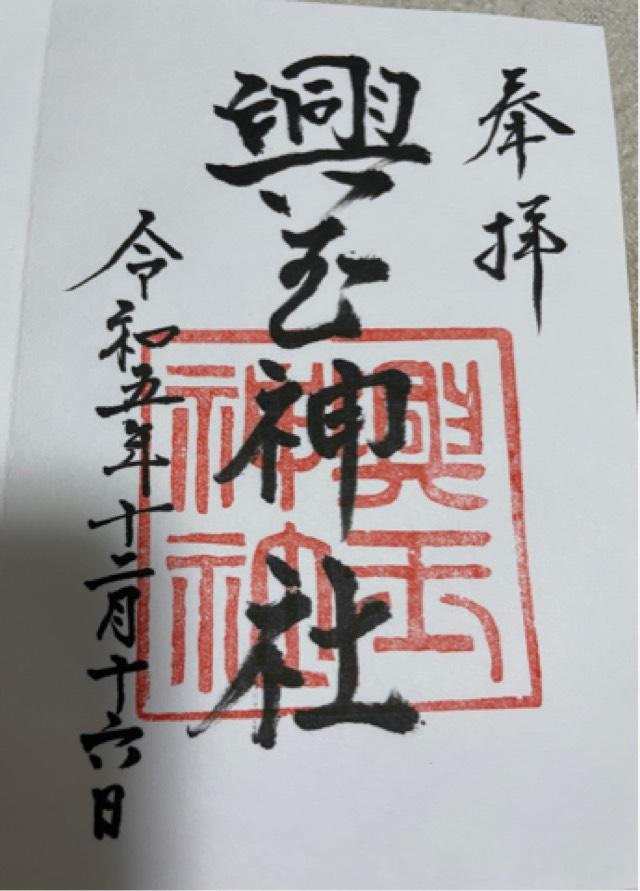 奉拝
興玉神社
興玉
神社
令和五年十二月十六日